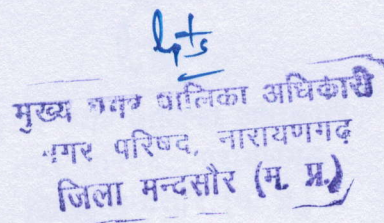 मुख्य नगर पालिका अधिकारी
नगर परिषद, नारायणगढ़
जिला मन्दसौर (म. प्र.)